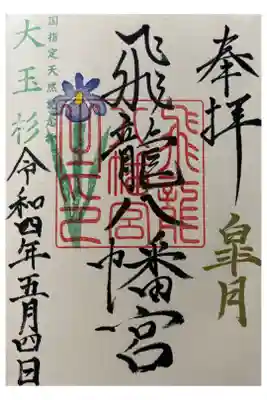 奉拝
皐月
飛龍八幡宮
飛龍
八幡宮
之印
国指定天然
大玉杉
令和四年五月四日